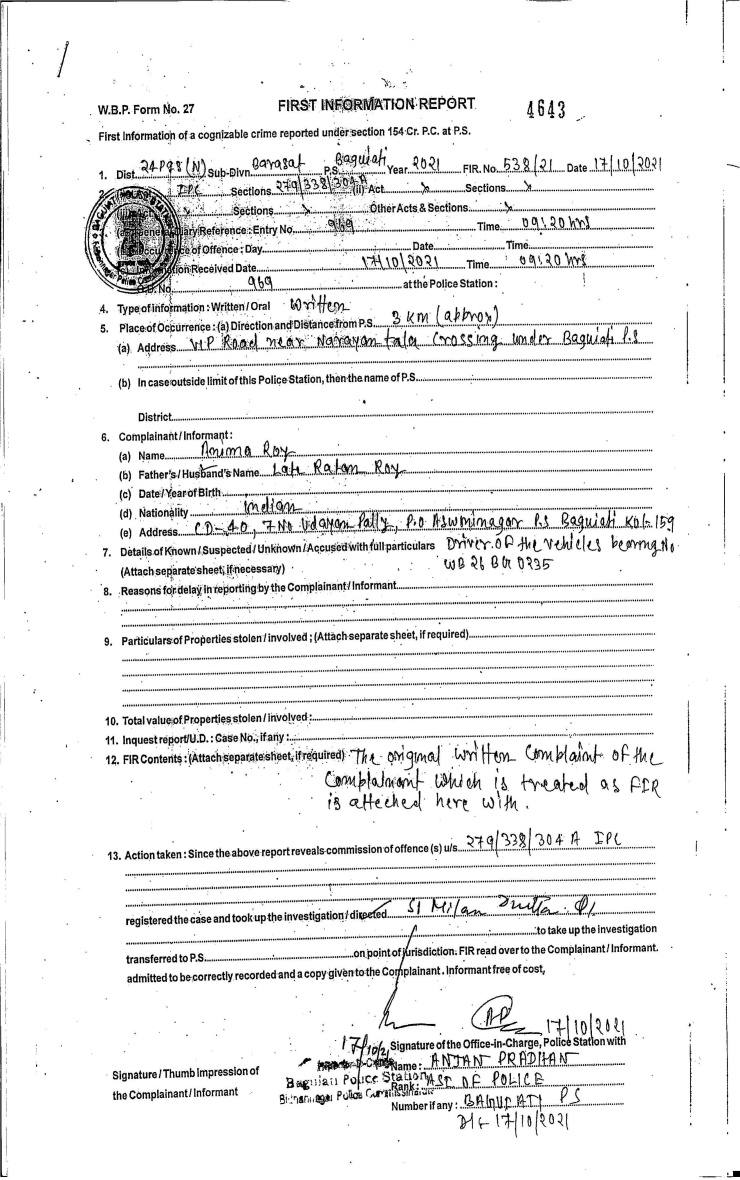 W.B.P. Form No. 27 FIRST INFORMATION REPORT 4643
First Information of a cognizable crime reported under section 154 Cr. P.C. at P.S.
1. Dist. 24 Pgs (N) Sub-Divn. Barasat P.S. Baguiati Year 2021 FIR. No. 538/21 Date 17/10/2021
2. IPC Sections 279/338/304 A (ii) Act x Sections x
Sections x Other Acts & Sections x
Reference : Entry No. 969 Time 09:20 hrs
of Offence : Day Date Time
Information Received Date 17/10/2021 Time 09:20 hrs
G.D. No. 969 at the Police Station :
4. Type of information : Written / Oral Written
5. Place of Occurrence : (a) Direction and Distance from P.S. 3 KM (approx)
(a) Address VIP Road near Narayantala Crossing under Baguiati P.S
(b) In case outside limit of this Police Station, then the name of P.S.
District
6. Complainant / Informant :
(a) Name Anima Roy
(b) Father's / Husband's Name Late Ratan Roy
(c) Date / Year of Birth
(d) Nationality Indian
(e) Address CD-40, 7 No Udayan Pally, P.O Aswininagar P.S Baguiati Kol-159
7. Details of Known / Suspected / Unknown / Accused with full particulars Driver of the vehicles bearing No
(Attach separate sheet, if necessary) WB 26 0235
8. Reasons for delay in reporting by the Complainant / Informant
9. Particulars of Properties stolen / involved ; (Attach separate sheet, if required)
10. Total value of Properties stolen / involved :
11. Inquest report / U.D. : Case No., if any :
12. FIR Contents : (Attach separate sheet, if required) The original written complaint of the
Complainant which is treated as FIR
is atteched here with.
13. Action taken : Since the above report reveals commission of offence (s) u/s. 279/338/304 A IPC
registered the case and took up the investigation / directed SI Milan Dutta
to take up the investigation
transferred to P.S. on point of jurisdiction. FIR read over to the Complainant / Informant.
admitted to be correctly recorded and a copy given to the Complainant. Informant free of cost,
AP 17/10/2021
17/10/21 Signature of the Office-in-Charge, Police Station with
Name : ANJAN PRADHAN
Signature / Thumb Impression of Baguiati Police Station Rank : ASI OF POLICE
the Complainant / Informant Bidhannagar Police Commissionerate Number if any : BAGUIATI PS
Dt- 17/10/2021